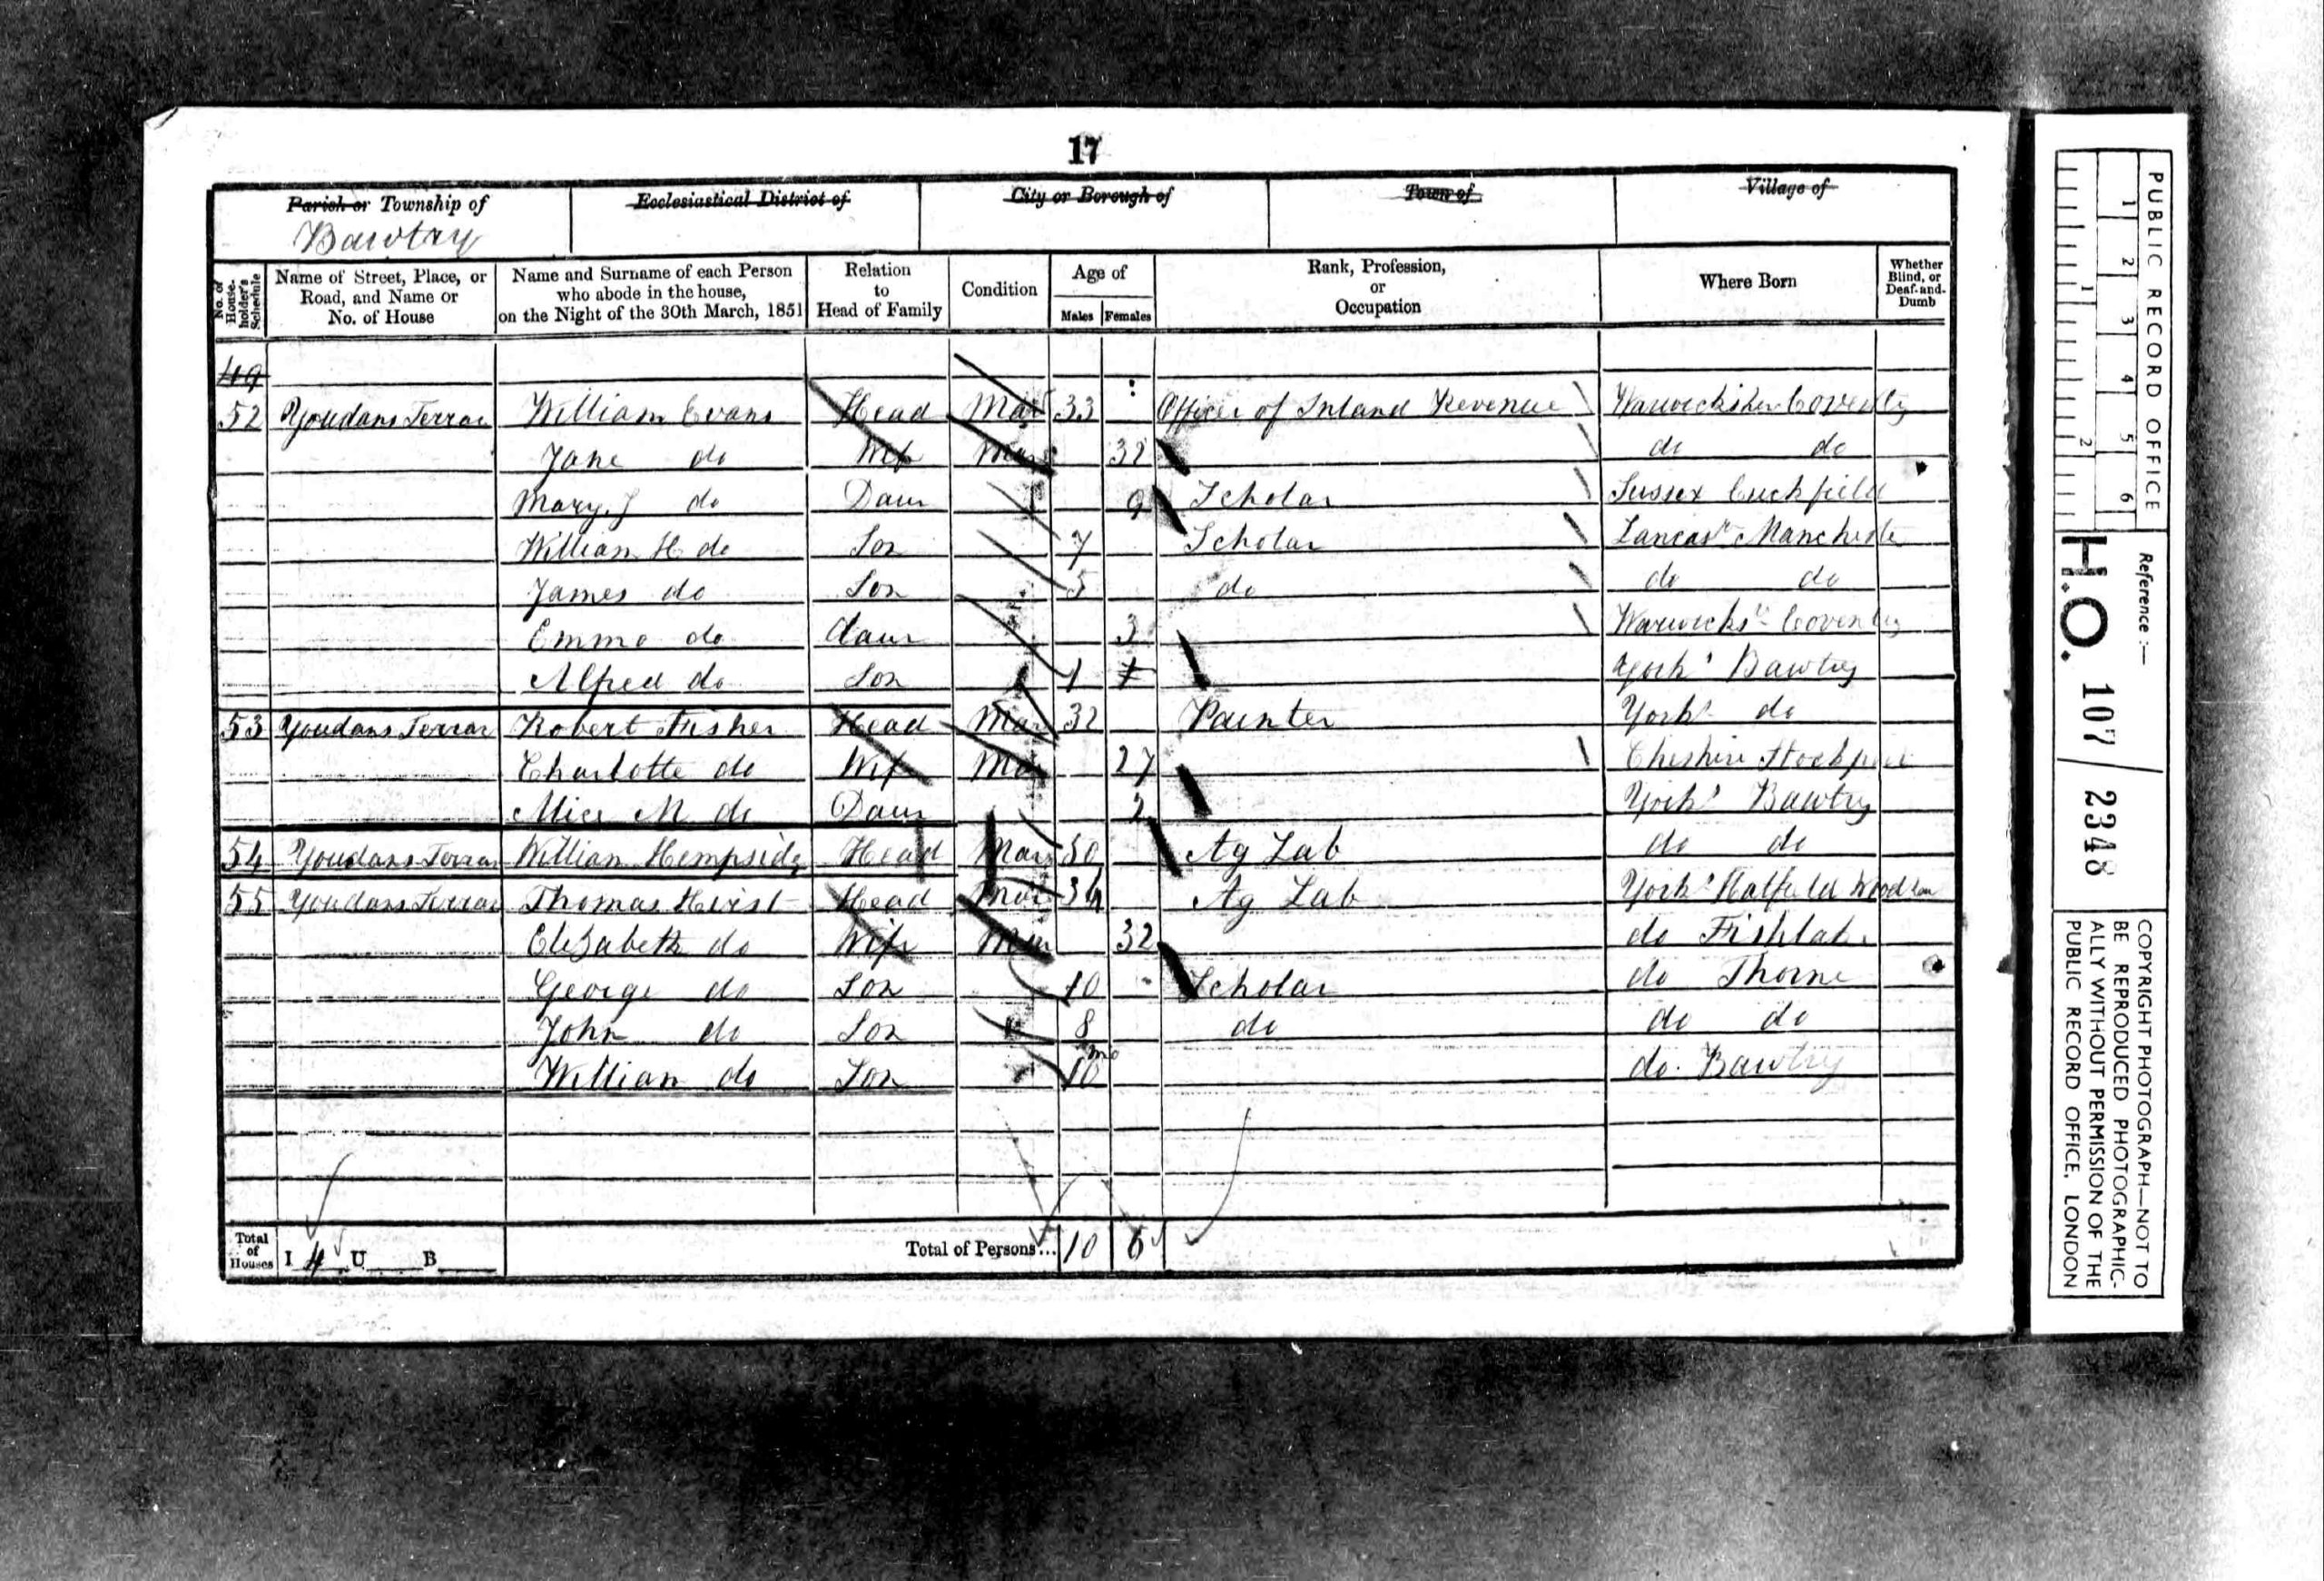 17
Parish or Township of
Ecclesiastical District of
City or Borough of
Town of
Village of
Bawtry
No. of House-holder's Schedule
Name of Street, Place, or Road, and Name or No. of House
Name and Surname of each Person who abode in the house, on the Night of the 30th March, 1851
Relation to Head of Family
Condition
Age of
Males Females
Rank, Profession, or Occupation
Where Born
Whether Blind, or Deaf-and-Dumb
49
52 Youdans Terrac William Evans Head Mar 33 Officer of Inland Revenue Warwickshire Coventry
Jane do Wife Mar 32 do do
Mary J do Daur 9 Scholar Sussex Cuckfield
William H do Son 7 Scholar Lancasr Manchester
James do Son 5 do do do
Emma do daur 3 Warwicks Coventry
Alfred do Son 1 York' Bawtry
53 Youdans Terrac Robert Fisher Head Mar 32 Painter York' do
Charlotte do Wife Mar 27 Cheshire Stockport
Alice M do Daur 2 York' Bawtry
54 Youdans Terrac William Head Mar 50 Ag Lab do do
55 Youdans Terrac Thomas Hirst Head Mar 34 Ag Lab York' Hatfield
Elizabeth do Wife Mar 32 do Fishlake
George do Son 10 Scholar do Thorne
John do Son 8 do do do
William do Son 10 mo do. Bawtry
Total of Houses I 4 U B
Total of Persons... 10 6
PUBLIC RECORD OFFICE
1 2 3 4 5 6
1 2
Reference :—
H.O. 107 / 2348
COPYRIGHT PHOTOGRAPH—NOT TO
BE REPRODUCED PHOTOGRAPHIC-
ALLY WITHOUT PERMISSION OF THE
PUBLIC RECORD OFFICE, LONDON